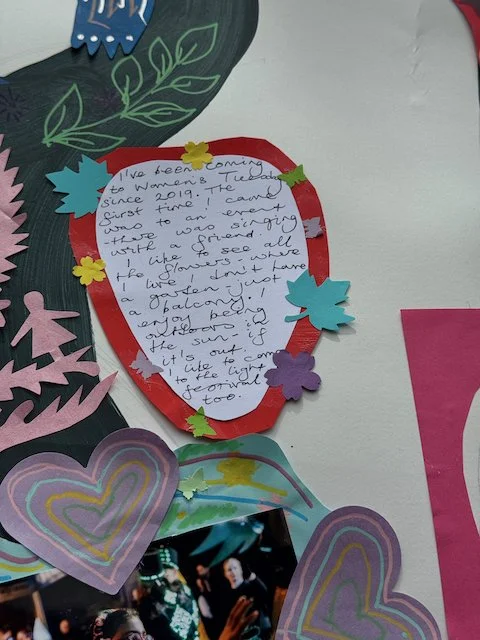 I've been coming
to Women's Tuesday
since 2019. The
first time I came
was to an event
- there was singing
with a friend.
I like to see all
the flowers - where
I live I don't have
a garden - just
a balcony. I
enjoy being
outdoors in
the sun if
it's out.
I like to come
to the light
festival
too.